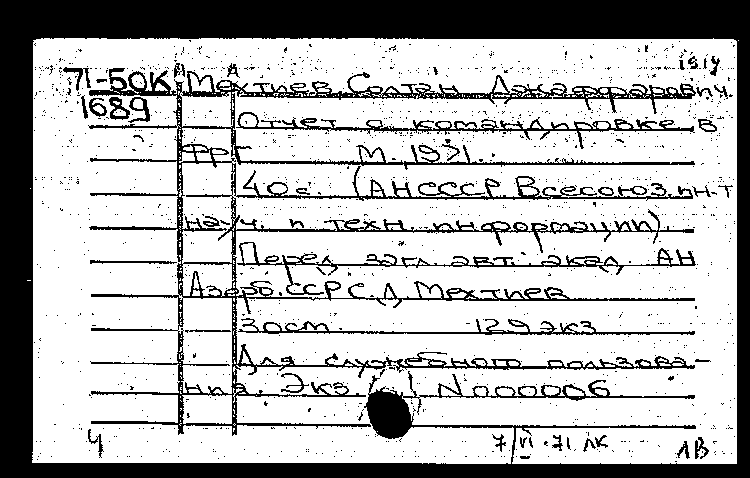 71-50К Мехтиев, Солтан Джаффарович.
1689
Отчет о командировке в
ФРГ М., 1971.
40 с. (АН СССР. Всесоюз. ин-т
науч. и техн. информации).
Перед загл. авт.: акад. АН
Азерб. ССР С.Д. Мехтиев
30 см. 129 экз
Для служебного пользова-
ния. Экз. N 000006
Ч 7/VI.71 ЛК ЛВ